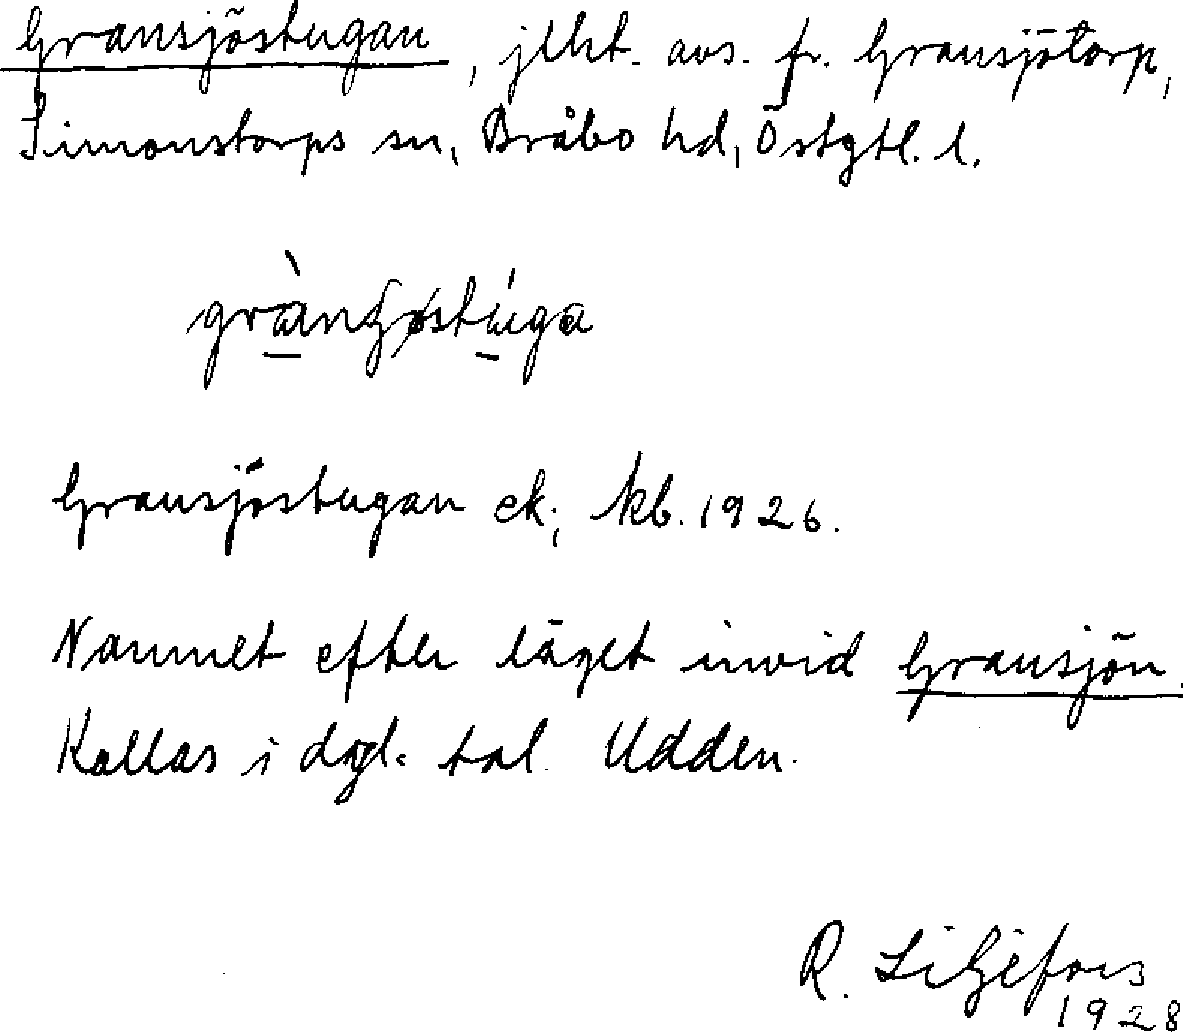 Gransjöstugan, jlht. avs. fr. Gransjötorp,
Simonstorps sn, Bråbo hd, Östgtl. l.
Gransjöstugan ek; kb. 1926.
Namnet efter läget invid Gransjön.
Kallas i dagl. tal Udden.
R. Liljefors
1928